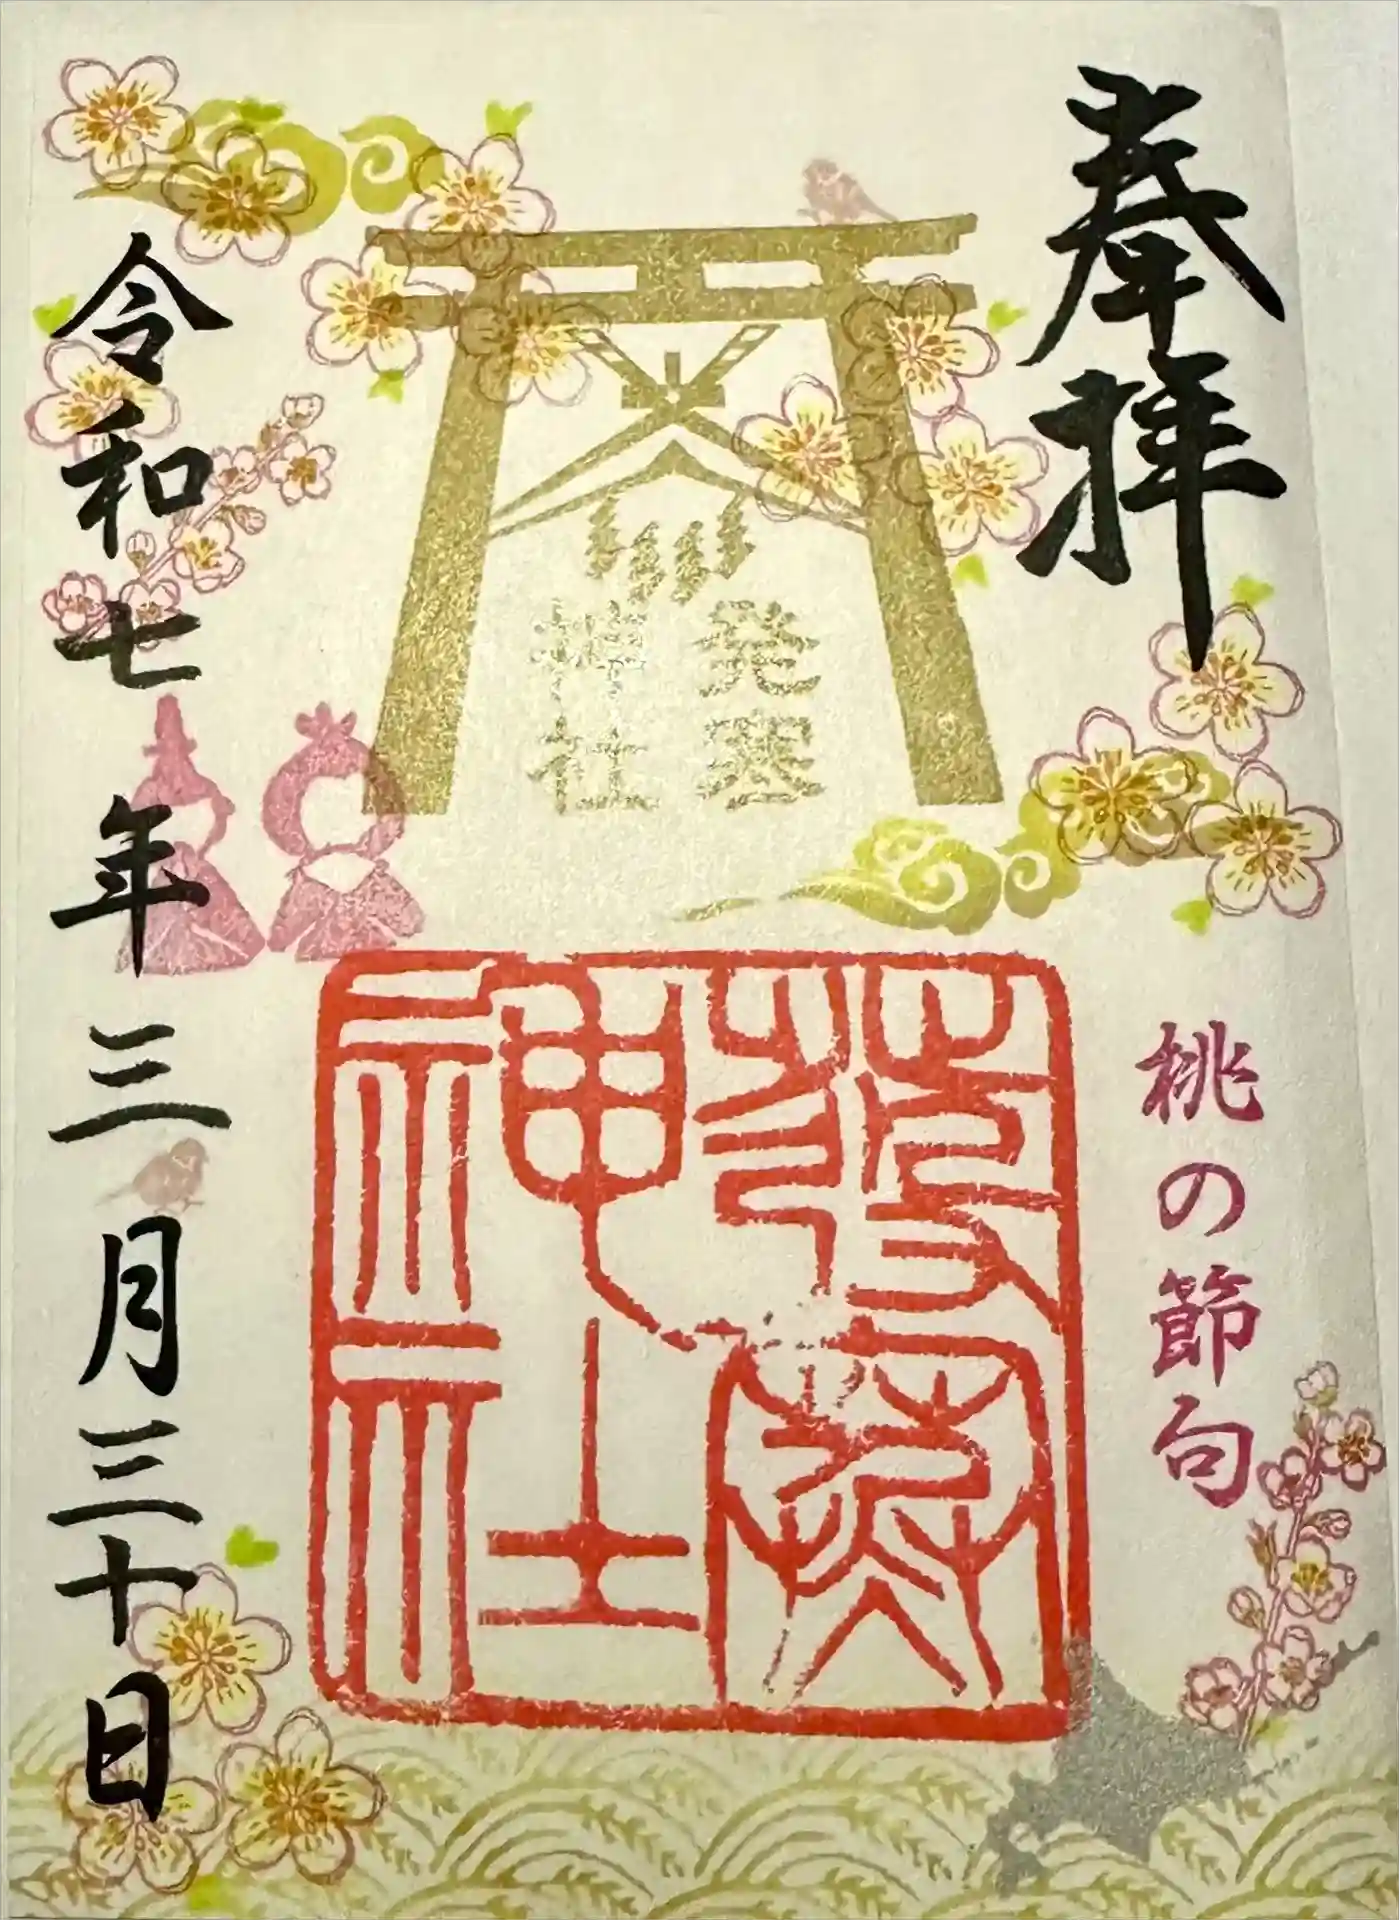 奉拝
桃の節句
発寒
神社
發寒
神社
令和七年三月三十日